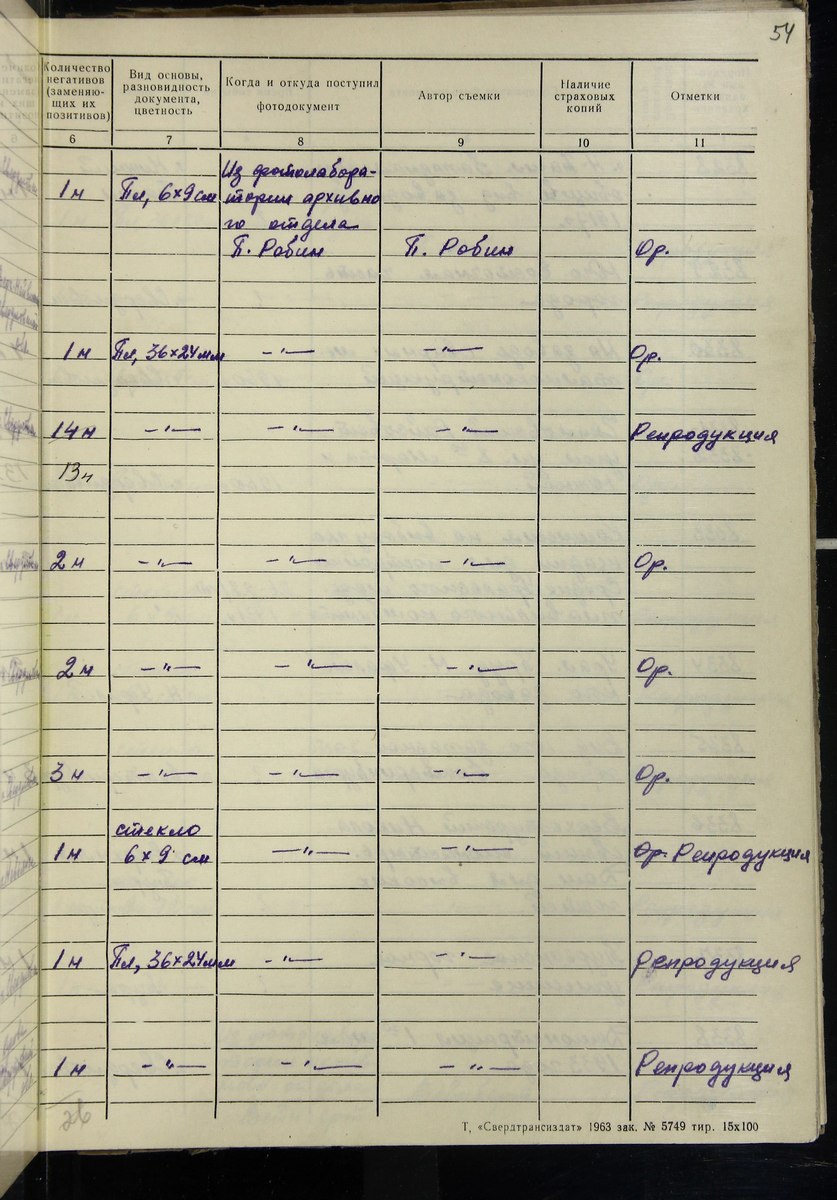 54
Количество негативов (заменяющих их позитивов)
Вид основы, разновидность документа, цветность
Когда и откуда поступил фотодокумент
Автор съемки
Наличие страховых копий
Отметки
6 7 8 9 10 11
Из фотолабора-
1 н Пл, 6×9 см тории архивно
го отдела
П. Робин П. Робин Ор.
1 н Пл, 36×24 мм —"— —"— Ор.
14 н —"— —"— —"— Репродукция
13 н
2 н —"— —"— —"— Ор.
2 н —"— —"— —"— Ор.
3 н —"— —"— —"— Ор.
стекло
1 н 6×9 см —"— —"— Ор. Репродукция
1 н Пл, 36×24 мм —"— —"— Репродукция
1 н —"— —"— —"— Репродукция
26
Т, «Свердтрансиздат» 1963 зак. № 5749 тир. 15х100